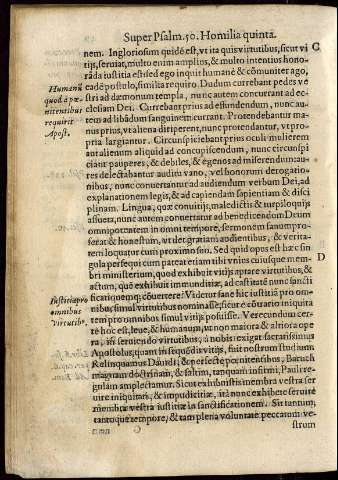 Super Psalm. 50. Homilia quinta.
nem. Ingloriosum quidē est, vt ita quis virtutibus, sicut vi
C
tijs, seruiat, multo enim amplius, & multo intentius hono-
rāda iustitia est: sed ego inquit humanè & cōmuniter ago,
Humanū
eadē postulo, similia requiro. Dudum currebant pedes ve
quod à pœ
stri ad dæmonum templa, nunc autem concurrant ad ec
nitentibus
clesiam Dei. Currebant prius ad effundendum, nunc au-
requirit
tem ad sanguinem currant. Protendebantur ma
Apost.
nus prius, vt aliena diriperent, nunc protendantur, vt pro-
pria largiantur. Circunspiciebant prius oculi mulierem
aut alienum aliquid ad concupiscendum, nunc circunspi
ciant pauperes, & debiles, & egenos ad miserendum: au-
res delectabantur auditu vano, vel bonorum derogatio-
nibus, nunc conuertantur ad audiendum verbum Dei, ad
explanationem legis, & ad capiendam sapientiam & disci
plinam. Lingua, quæ conuitijs, maledictis & turpiloquijs
assueta, nunc autem conuertatur ad benedicendom Deum
omnipotentem in omni tempore, sermonem sanum pro-
ferat & honestum, vt det gratiam audientibus, & verita-
tem loquatur cum proximo suo. Sed quid opus est hæc sin
gula persequi cum pateat etiam tibi vnius cuiusque mem
D
bri ministerium, quod exhibuit vitijs aptare virtutibus, &
actum, quē exhibuit immunditiæ, ad castitatē nunc sancti
Iustitia pro
ficatiquemq; cōuertere? Videtur sane hic iustitiā pro om-
omnibus
nibus simul virtutibus nominasse, sicut è cōtrario iniquita
virtutib.
tem pro omnibus simul vitijs posuisse. Verecundum cer-
tè hoc est, leue, & humanum, vt non maiora & altiora ope
ra, in seruiendo virtutibus, à nobis exigat sacratissimus
Apostolus, quam in sequēdis vitijs, fuit nostrum studium.
Relinquamus Dauidi, & perfectæ pœnitentibus, Baruch
magnam doctrinam, & saltim, tanquam infimi, Pauli re-
gulam amplectamur. Sicut exhibuistis membra vestra ser
uire iniquitati, & impudicitiæ, ità nunc exhibete seruire
membra vestra iustitiæ in sanctificationem. Sit tantum,
tantoque tempore, & tam plena voluntate peccatum ve-
strum